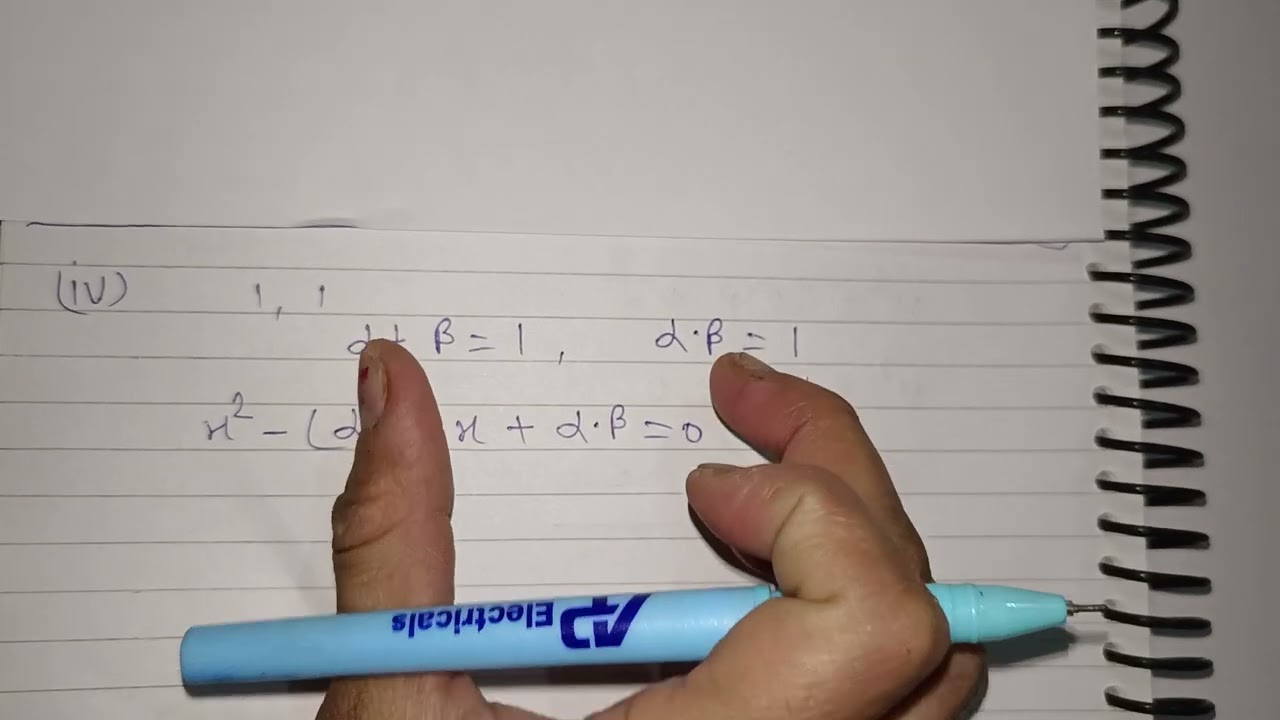 (iv) 1, 1
α+ β = 1, α·β = 1
x² - (α x + α·β = 0
AP Electricals